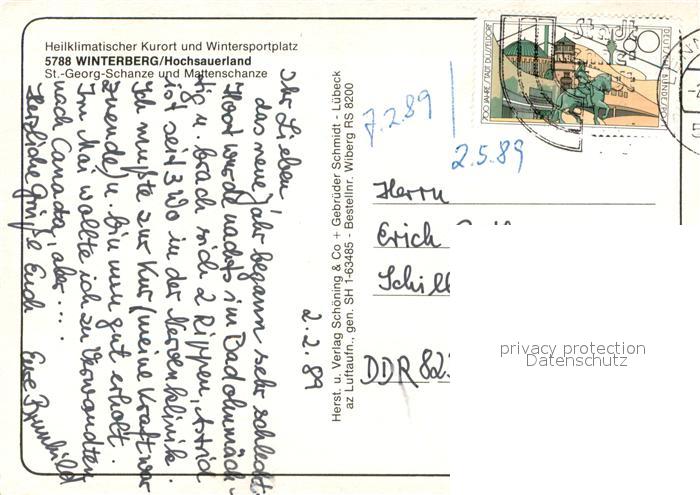 Heilklimatischer Kurort und Wintersportplatz
5788 WINTERBERG/Hochsauerland
St.-Georg-Schanze und Mattenschanze
Ihr Lieben,
das neue Jahr begann sehr schlecht.
wurde nachts im Bad ohnmäch-
tig u. brach sich 2 Rippen, Astrid
ist seit 3 Wo in der Nervenklinik.
Ich mußte zur Kur (meine Kraft war
zuende) u. bin nun gut erholt.
Im Mai wollte ich zu Verwandten
nach Canada, aber ....
Herzliche Grüße Euch Eure Brunhild
2.2.89
Herst. u. Verlag Schöning & Co + Gebrüder Schmidt - Lübeck
az Luftaufn., gen. SH 1-63485 - Bestellnr. Wiberg RS 8200
7.2.89
2.5.89
700 JAHRE STADT DÜSSELDORF
60
Herrn
Erich
Schill
DDR 82
privacy protection
Datenschutz